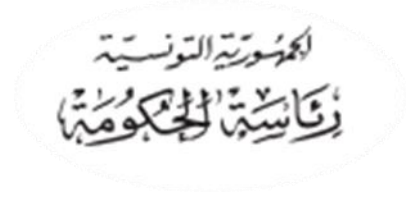 الجمهورية التونسية
رِئَاسَةُ الحُكُومَة